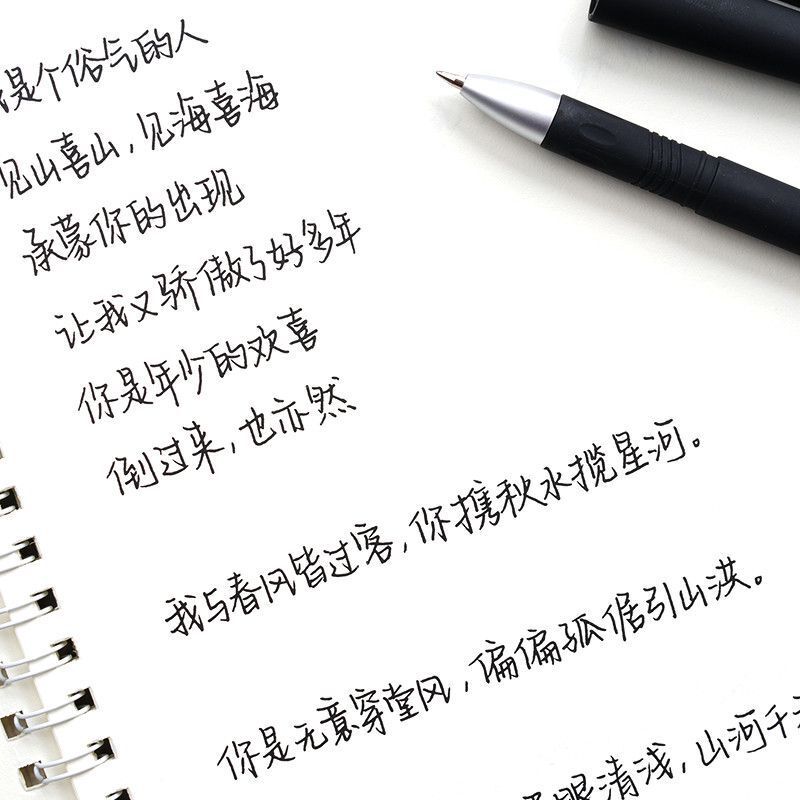 我是个俗气的人
见山喜山，见海喜海
承蒙你的出现
让我又骄傲了好多年
你是年少的欢喜
倒过来，也亦然
我与春风皆过客，你携秋水揽星河。
你是无意穿堂风，偏偏孤倨引山洪。
眼清浅，山河千